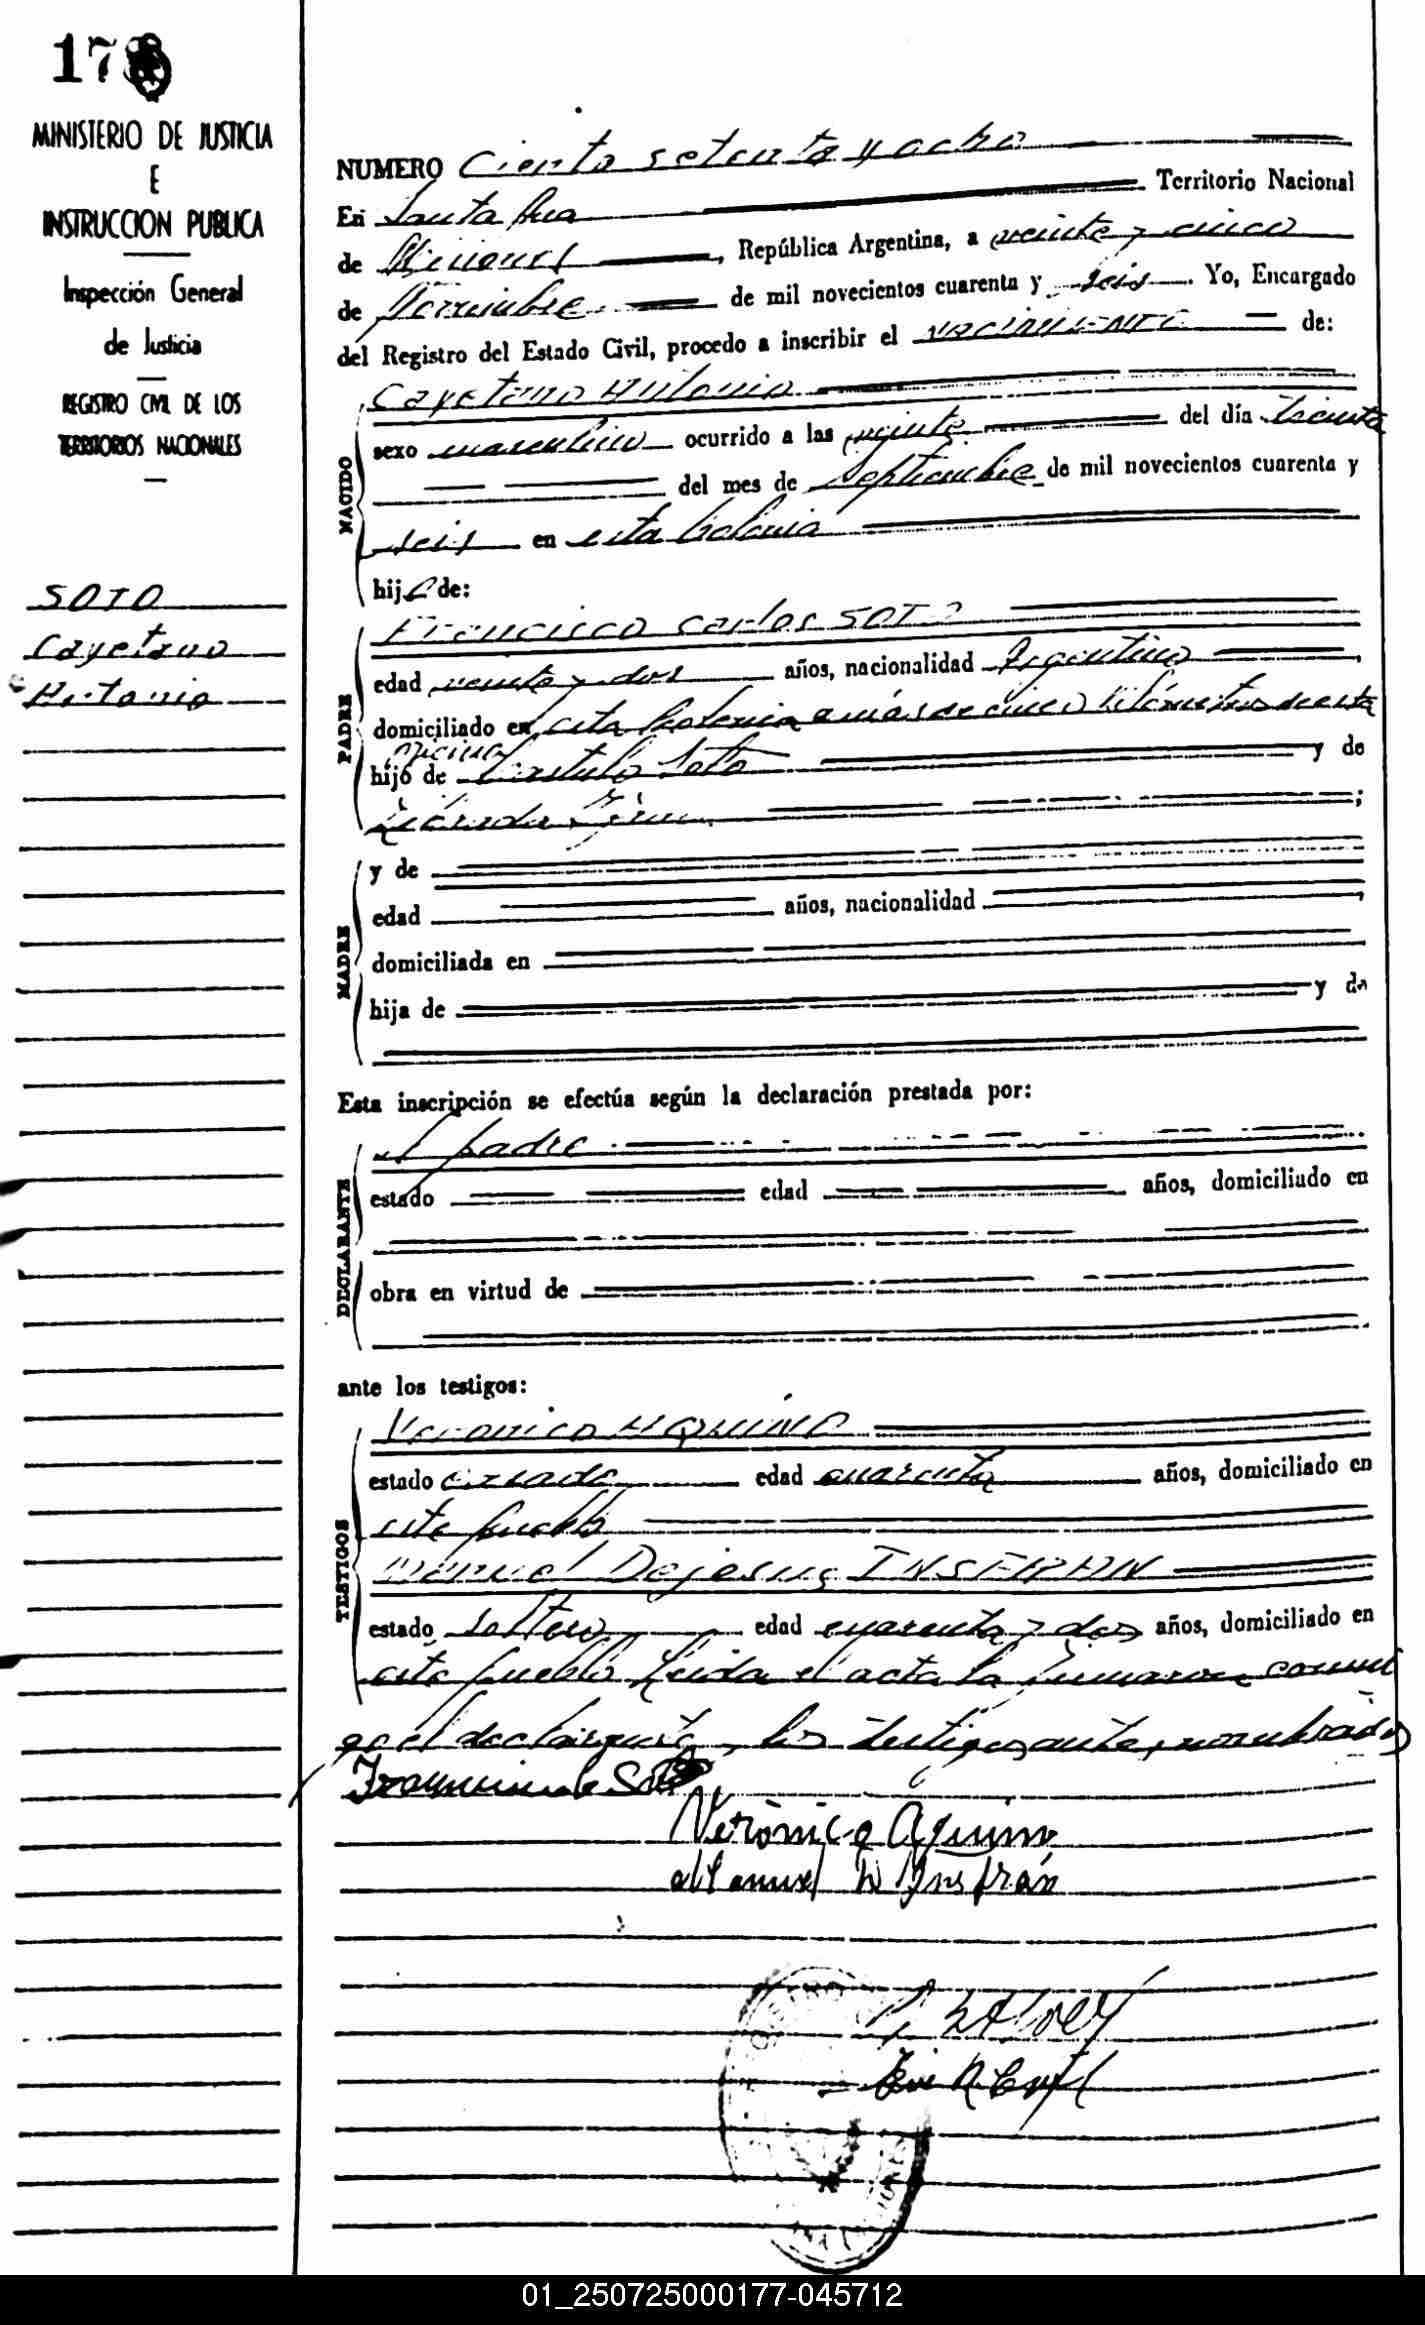 178
MINISTERIO DE JUSTICIA
E
INSTRUCCION PUBLICA
Inspección General
de Justicia
REGISTRO CIVIL DE LOS
TERRITORIOS NACIONALES
SOTO
Cayetano
Antonio
NUMERO Ciento setenta y ocho
En Santa Ana Territorio Nacional
de Misiones, República Argentina, a veinte y cinco
de Noviembre de mil novecientos cuarenta y seis. Yo, Encargado
del Registro del Estado Civil, procedo a inscribir el nacimiento de:
NACIDO
Cayetano Antonio
sexo masculino ocurrido a las veinte del día treinta
del mes de Septiembre de mil novecientos cuarenta y
seis en esta Colonia
hijo de:
PADRE
Francisco Carlos SOTO
edad veinte y dos años, nacionalidad Argentino,
domiciliado en esta Colonia a más de cinco kilómetros de esta
oficina
hijo de Soto y de
;
MADRE
y de
edad años, nacionalidad ,
domiciliada en
hija de y de
Esta inscripción se efectúa según la declaración prestada por:
DECLARANTE
el padre
estado edad años, domiciliado en
obra en virtud de
ante los testigos:
TESTIGOS
Veronico AQUINO
estado casado edad cuarenta años, domiciliado en
este pueblo
Manuel Dejesus INSFRAN
estado soltero edad cuarenta y dos años, domiciliado en
este pueblo Leida el acta la firmaron conmi
go el declarante y los testigos antes nombrados
Soto
Verònico Aquino
Manuel D Insfrán
01_250725000177-045712